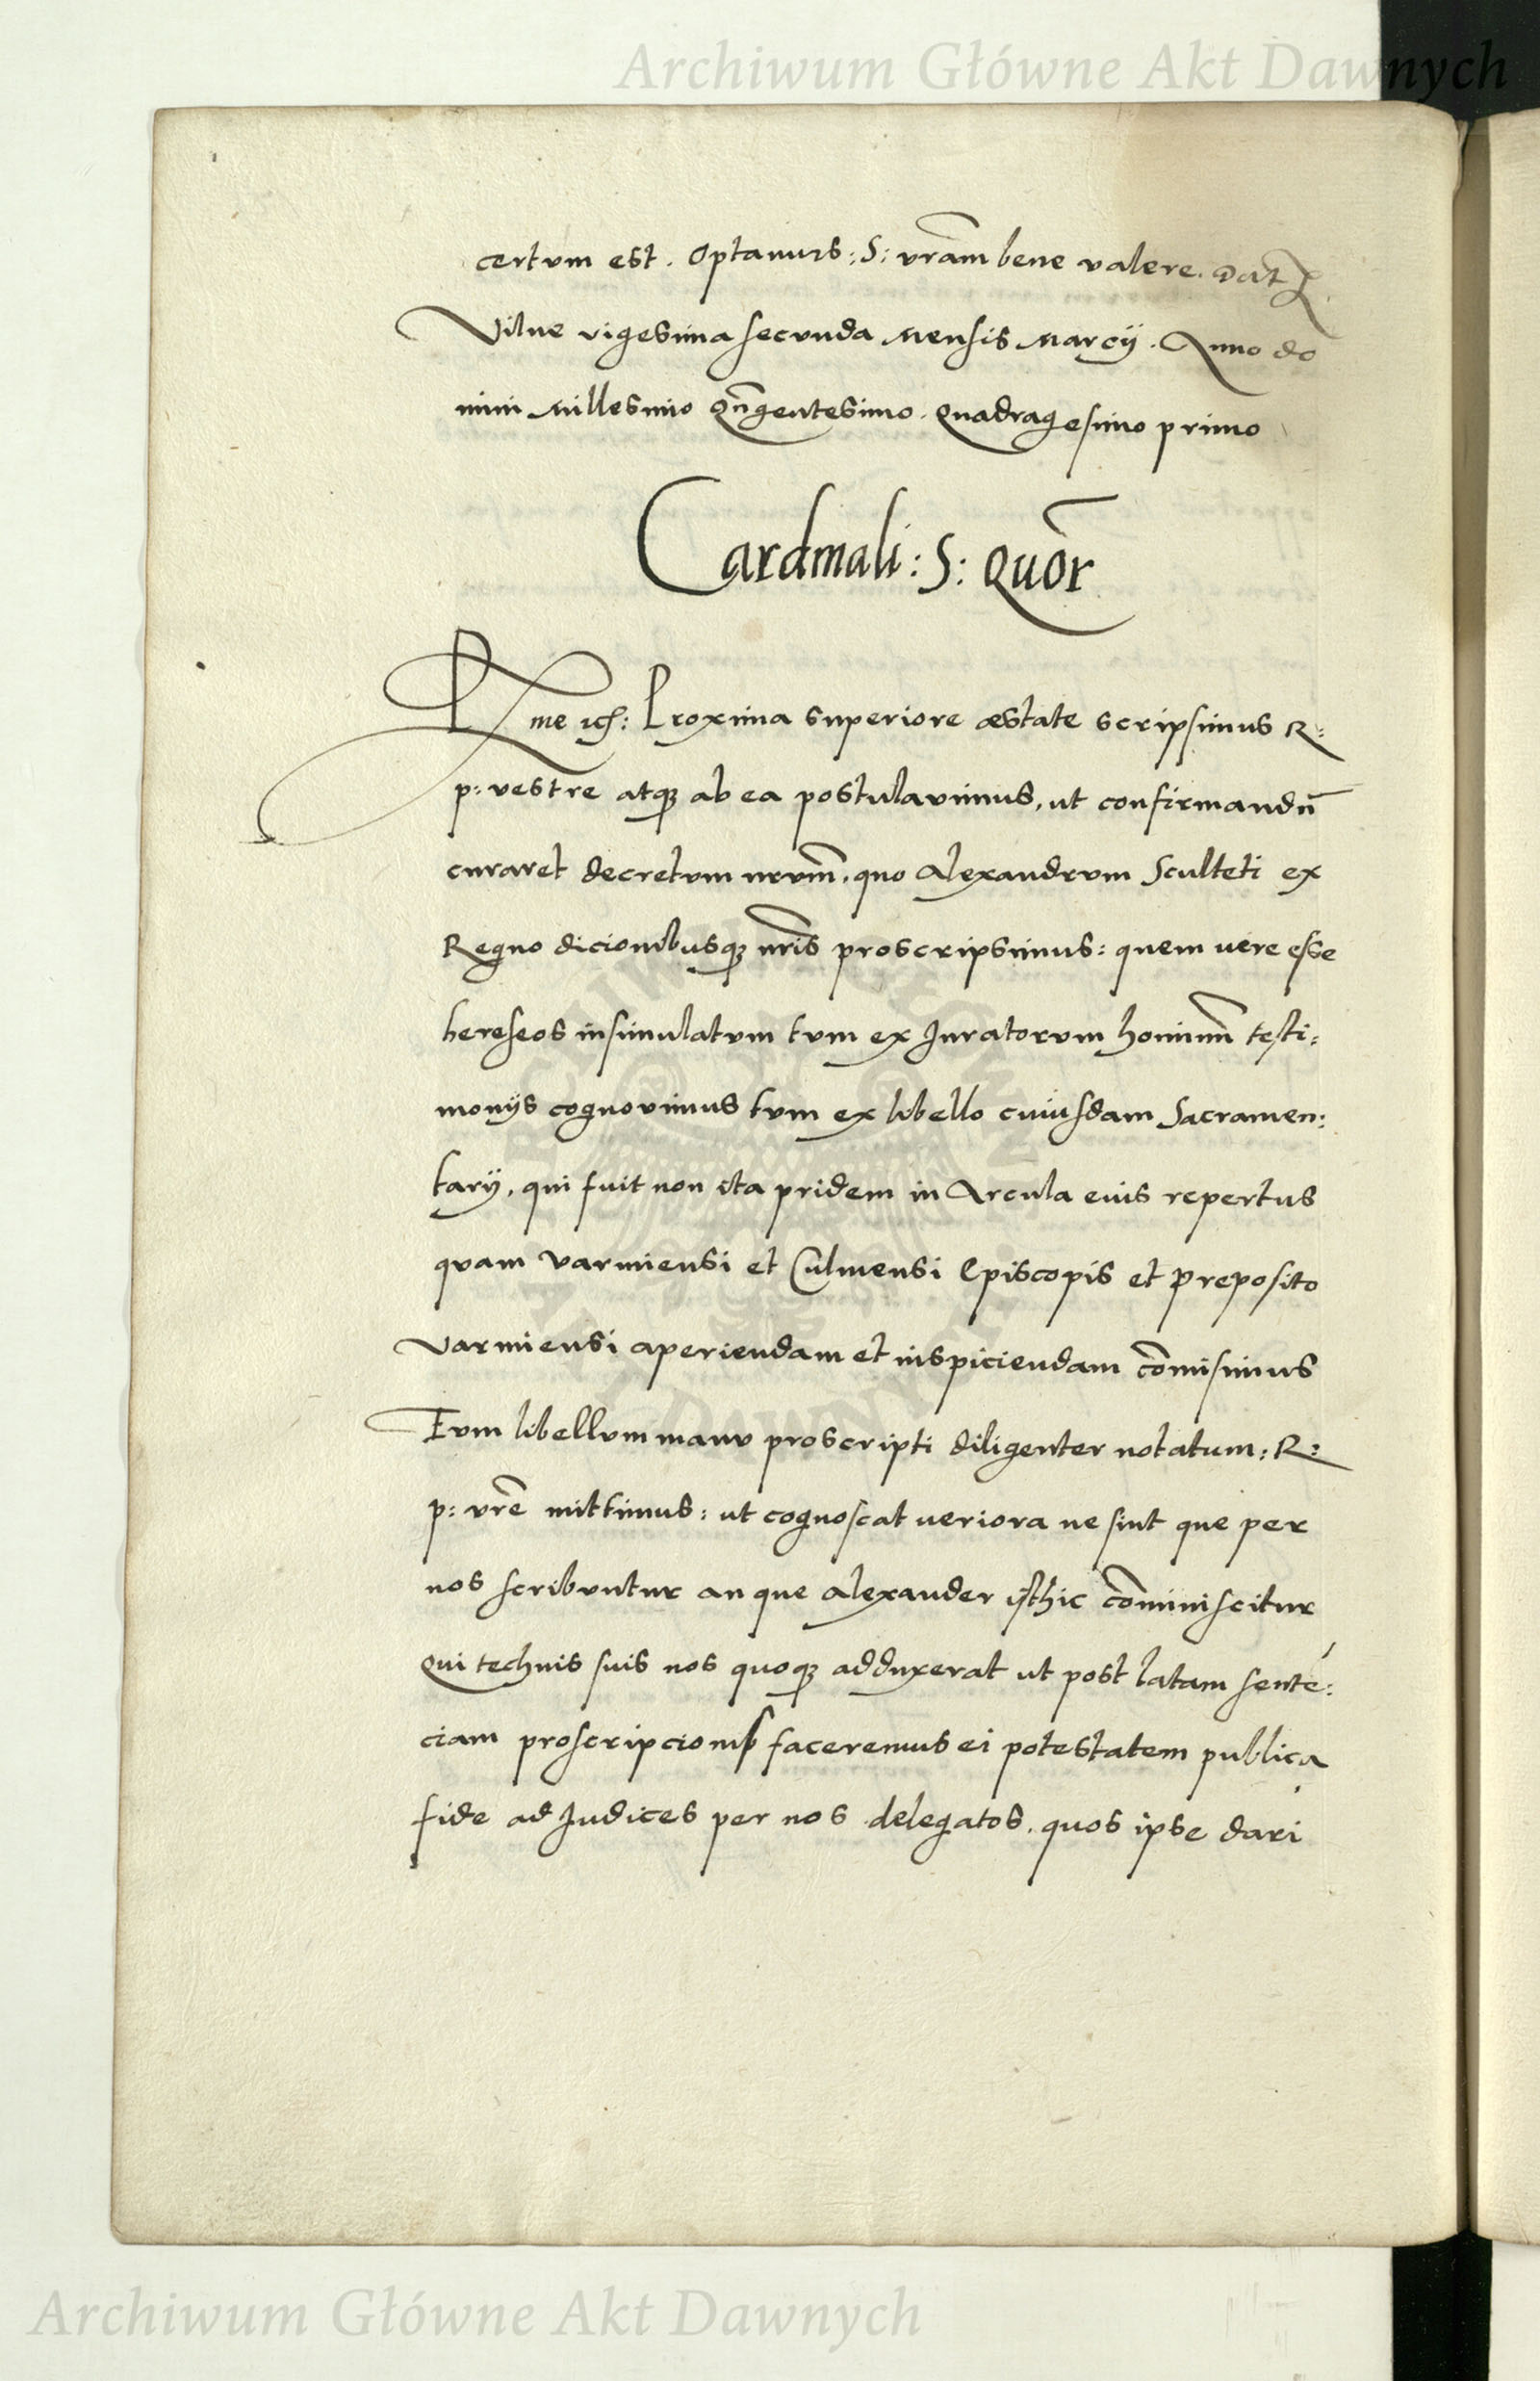 Archiwum Główne Akt Dawnych
certum est. Optamus: S: vram bene valere. Dat
Vilne vigesima secunda Mensis Marcÿ. Anno do
mini Millesimo Qungentesimo. Quadragesimo primo
Cardinali: S: Quor
Rme etc: Proxima superiore æstate scripsimus R:
p: vestre atq ab ea postulavimus, ut confirmandū
curaret decretum nrum, quo Alexandrum Sculteti ex
Regno dicionibusq nris proscripsimus: quem vere esse
hereseos insimulatum tum ex Juratorum hominum testi:
monÿs cognovimus tum ex libello cuiusdam Sacramen:
tarÿ, qui fuit non ita pridem in Arcula eius repertus
quam Varmiensi et Culmensi Episcopis et Preposito
Varmiensi aperiendam et inspiciendam cōmisimus
Eum libellum manu proscripti diligenter notatum: R:
p: vrē mittimus: ut cognoscat veriora ne sint que per
nos scribuntur an que Alexander isthic cōminiscitur
Qui technis suis nos quoq adduxerat ut post latam senté:
ciam proscripcionis faceremus ei potestatem publica
fide ad Judices per nos delegatos. quos ipse dari
Archiwum Główne Akt Dawnych